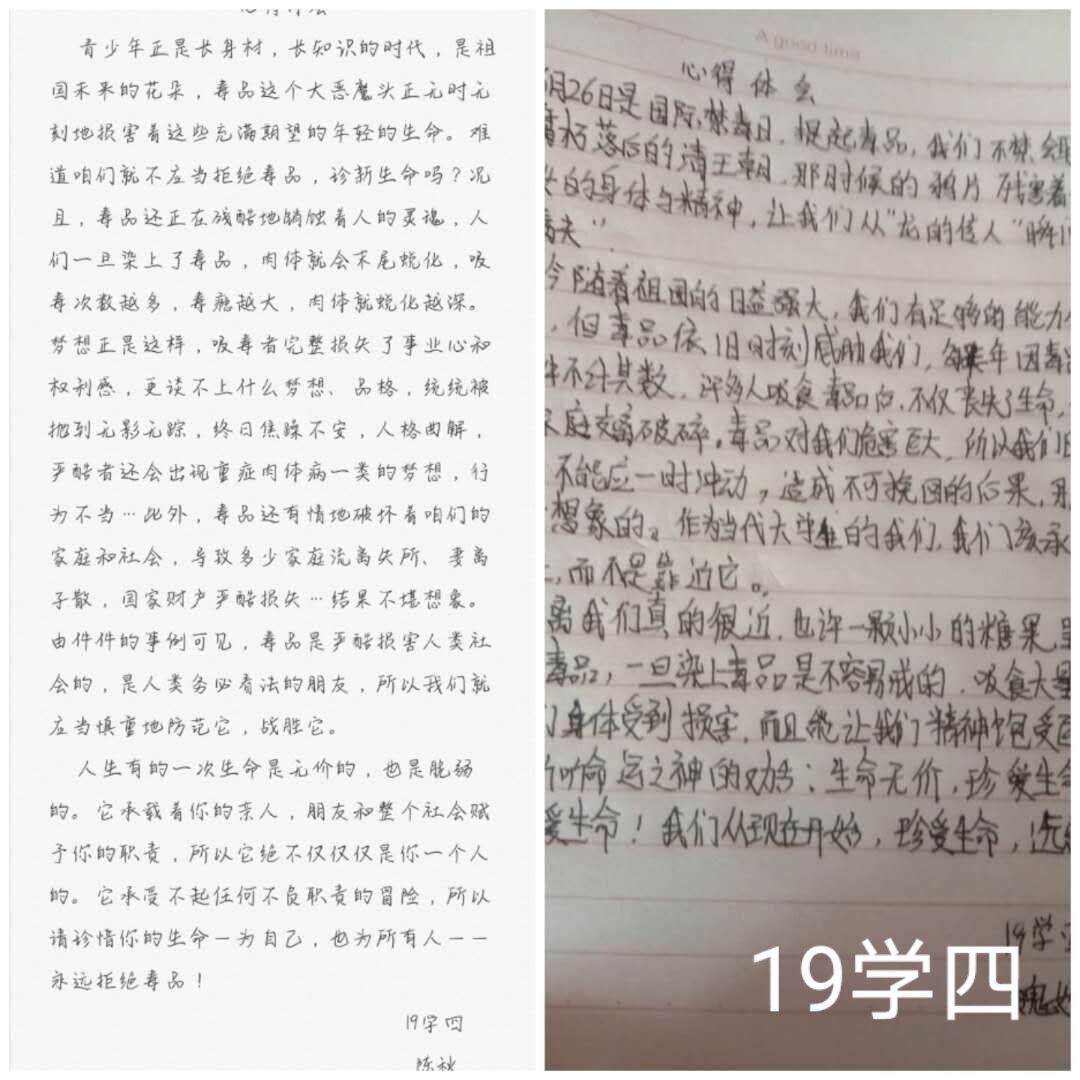 心得体会
青少年正是长身材，长知识的时代，是祖
国未来的花朵，毒品这个大恶魔头正无时无
刻地损害着这些充满期望的年轻的生命。难
道咱们就不应当拒绝毒品，诊新生命吗？况
且，毒品还正在残酷地销蚀着人的灵魂，人
们一旦染上了毒品，肉体就会末尾蜕化，吸
毒次数越多，毒瘾越大，肉体就蜕化越深。
梦想正是这样，吸毒者完整损失了事业心和
权利感，更谈不上什么梦想、品格，统统被
抛到无影无踪，终日焦躁不安，人格曲解，
严酷者还会出现重症肉体病一类的梦想，行
为不当…此外，毒品还有情地破坏着咱们的
家庭和社会，导致多少家庭流离失所、妻离
子散，国家财产严酷损失…结果不堪想象。
由件件的事例可见，毒品是严酷损害人类社
会的，是人类务必看法的朋友，所以我们就
应当慎重地防范它，战胜它。
人生有的一次生命是无价的，也是脆弱
的。它承载着你的亲人，朋友和整个社会赋
予你的职责，所以它绝不仅仅仅是你一个人
的。它承受不起任何不负职责的冒险，所以
请珍惜你的生命一为自己，也为所有人一一
永远拒绝毒品！
19学四
陈秋
A good time
心得体会
月26日是国际禁毒日，提起毒品，我们不禁会
腐朽落后的清王朝，那时候的鸦片残害着
的身体与精神，让我们从“龙的传人”瞬
病夫”．
今随着祖国的日益强大，我们有足够的能力
，但毒品依旧时刻威胁我们，每年因毒
件不计其数，许多人吸食毒品后，不仅丧失了生命，
家庭支离破碎。毒品对我们危害巨大，所以我们
不能应一时冲动，造成不可挽回的后果，
想象的。作为当代大学生的我们，我们该承
，而不是靠近它。
离我们真的很近，也许一颗小小的糖果，
毒品，一旦染上毒品是不容易戒的．吸食大量
们身体受到损害，而且能让我们精神饱受
听命运之神的劝告：生命无价，珍爱生命
爱生命！我们从现在开始，珍爱生命，远
19学
19学四